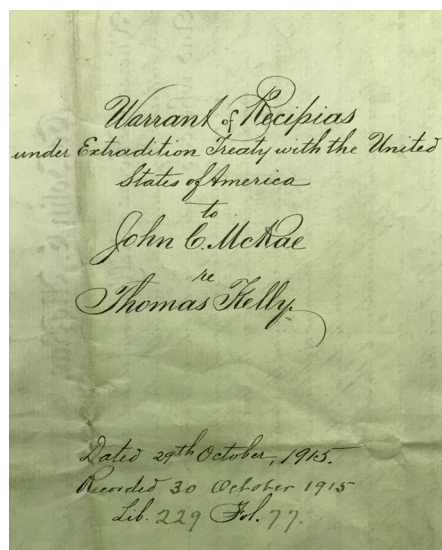 Warrant of Recipias
under Extradition Treaty with the United
States of America
to
John C. McRae
re
Thomas Kelly.
Dated 29th October, 1915.
Recorded 30 October 1915
Lib. 229 Fol. 77.